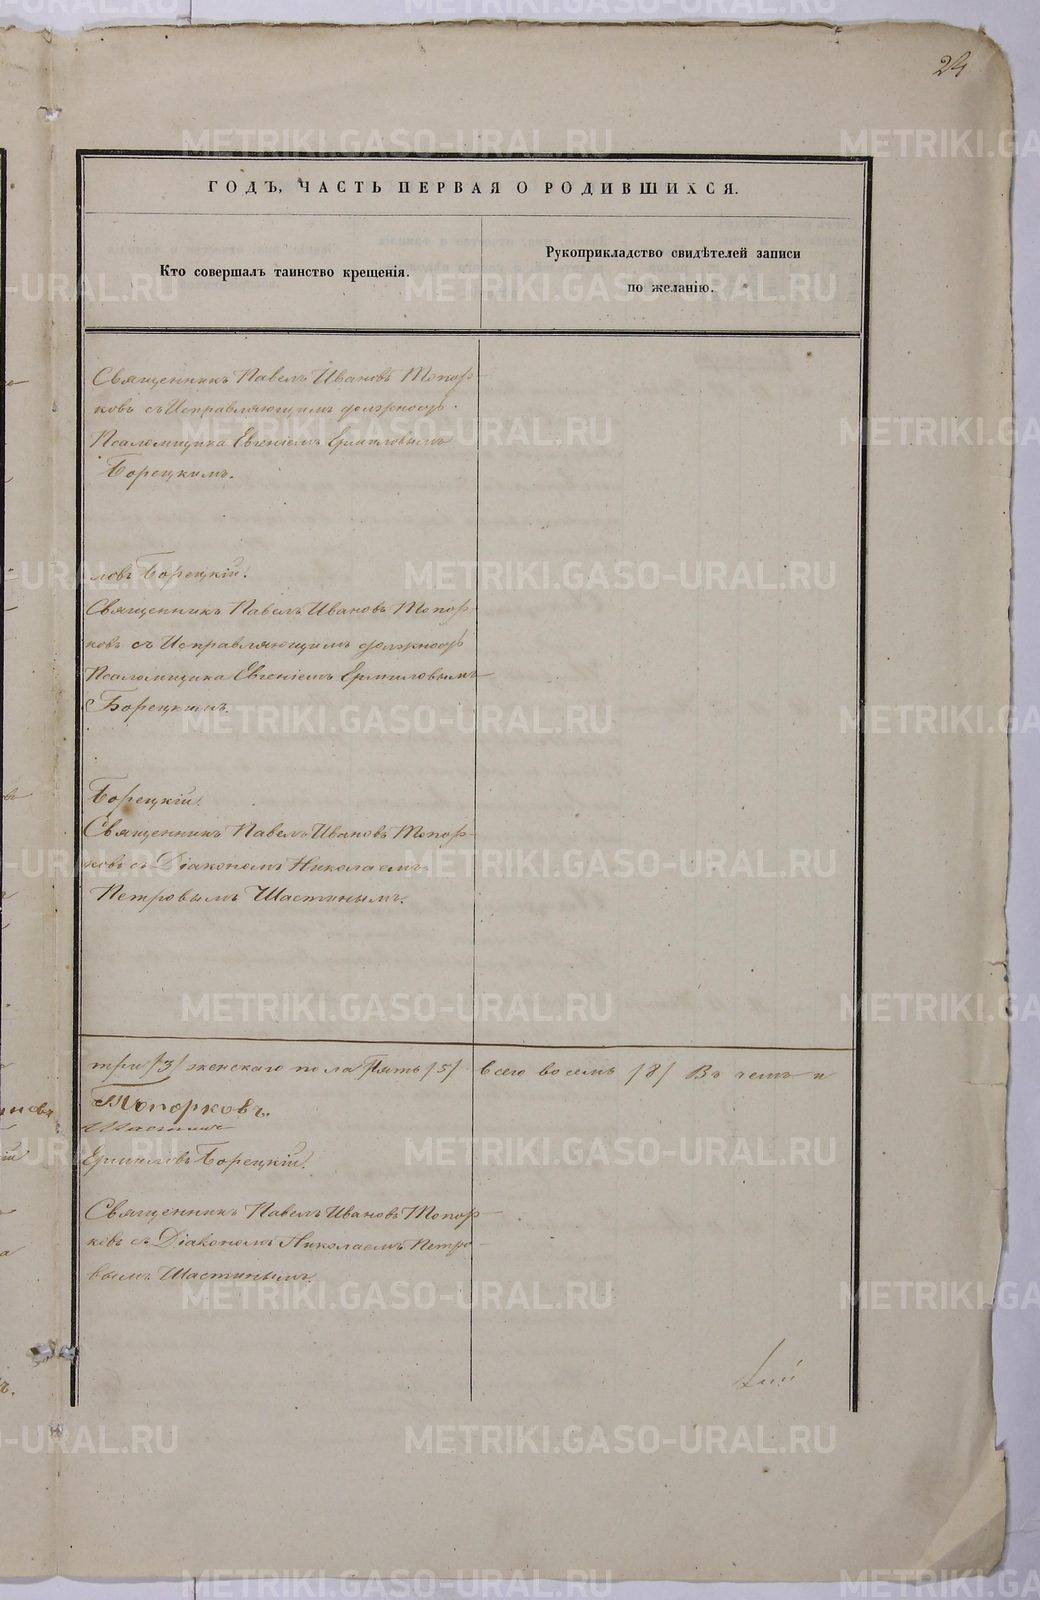 24
ГОДЪ, ЧАСТЬ ПЕРВАЯ О РОДИВШИХСЯ.
Кто совершалъ таинство крещенія.
Рукоприкладство свидѣтелей записи
по желанію.
Священникъ Павелъ Ивановъ Топор
ковъ съ Исправляющимъ должност.
Псаломщика Евгеніемъ Ермиловымъ
Борецкимъ.
ловъ Борецкій.
Священникъ Павелъ Ивановъ Топор-
ковъ съ Исправляющимъ должност
Псаломщика Евгеніемъ Ермиловымъ
Борецкимъ.
Борецкій.
Священникъ Павелъ Ивановъ Топор-
ковъ съ Діакономъ Николаемъ
Петровымъ Шастинымъ.
три /3/ женскаго пола Пять /5/ всего восемь /8/ Въ чемъ и
Топорковъ.
Шастинъ
Ермиловъ Борецкій.
Священникъ Павелъ Ивановъ Топор-
ковъ съ Діакономъ Николаемъ Петро-
вымъ Шастинымъ.
METRIKI.GASO-URAL.RU